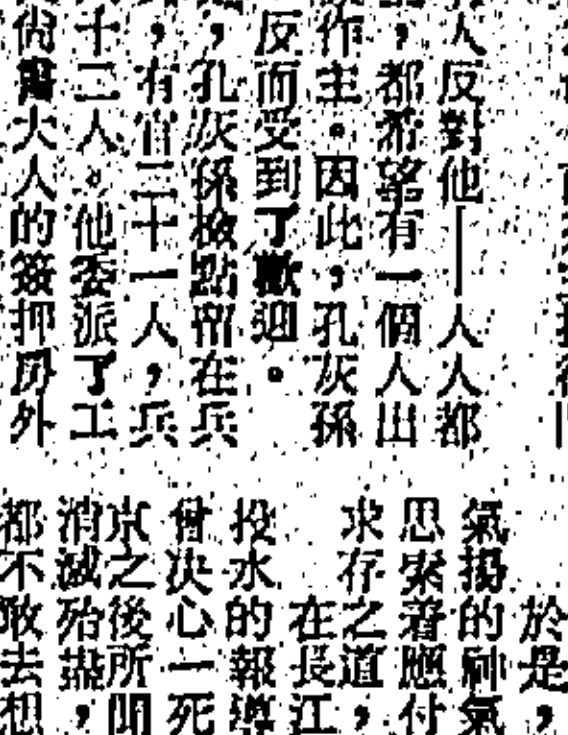 人反對他—人人都
，都希望有一個人出
作主。因此，孔灰孫
反而受到了歡迎。
，孔灰孫檢點留在兵
，有官三十一人，兵
十二人。他委派了工
尚書大人的簽押房外
於是，
氣揚的神氣
思索着應付
求存之道，
在長江
投水的報導
曾决心一死
京之後所聞
消滅殆盡，
都不敢去想